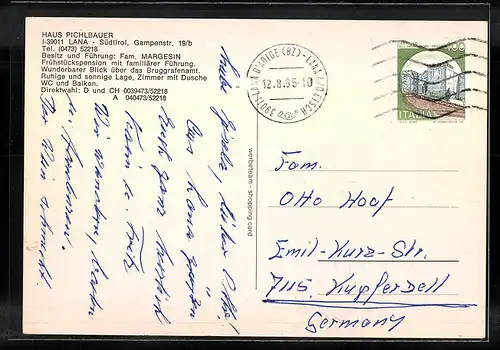 HAUS PICHLBAUER
I-39011 LANA - Südtirol, Gampenstr. 19/b
Tel. (0473) 52218
Besitz und Führung: Fam. MARGESIN
Frühstückspension mit familiärer Führung.
Wunderbarer Blick über das Bruggrafenamt.
Ruhige und sonnige Lage, Zimmer mit Dusche
WC und Balkon.
Direktwahl: D und CH 0039473/52218
A 040473/52218
Liebe Gisela, lieber Otto!
Aus Lana grüßen
Euch ganz herzlich
Wir wandern,
Der Wein schmeckt.
werbeteam - shopping card
39011 LANA D'ADIGE (BZ)
12.8.85-10
ITALIA
Fam.
Otto
Emil-Kurz-Str.
7115 Kupferzell
Germany